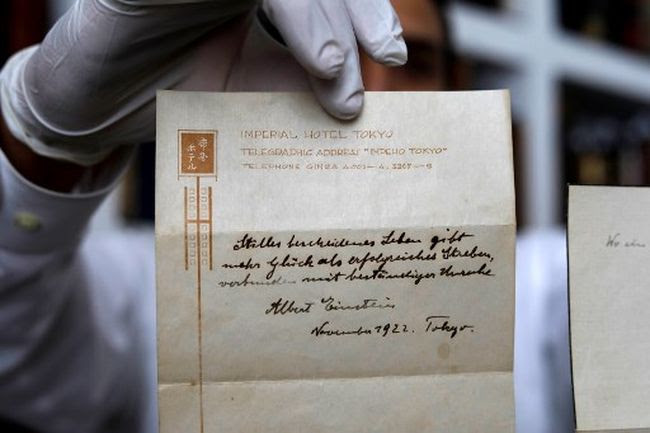 IMPERIAL HOTEL TOKYO
TELEGRAPHIC ADDRESS "IMPEHO TOKYO"
帝国
ホテル
Stilles bescheidenes Leben gibt
mehr Glück als erfolgreiches Streben,
verbunden mit beständiger Unruhe
Albert Einstein
November 1922. Tokyo.
Wo ein